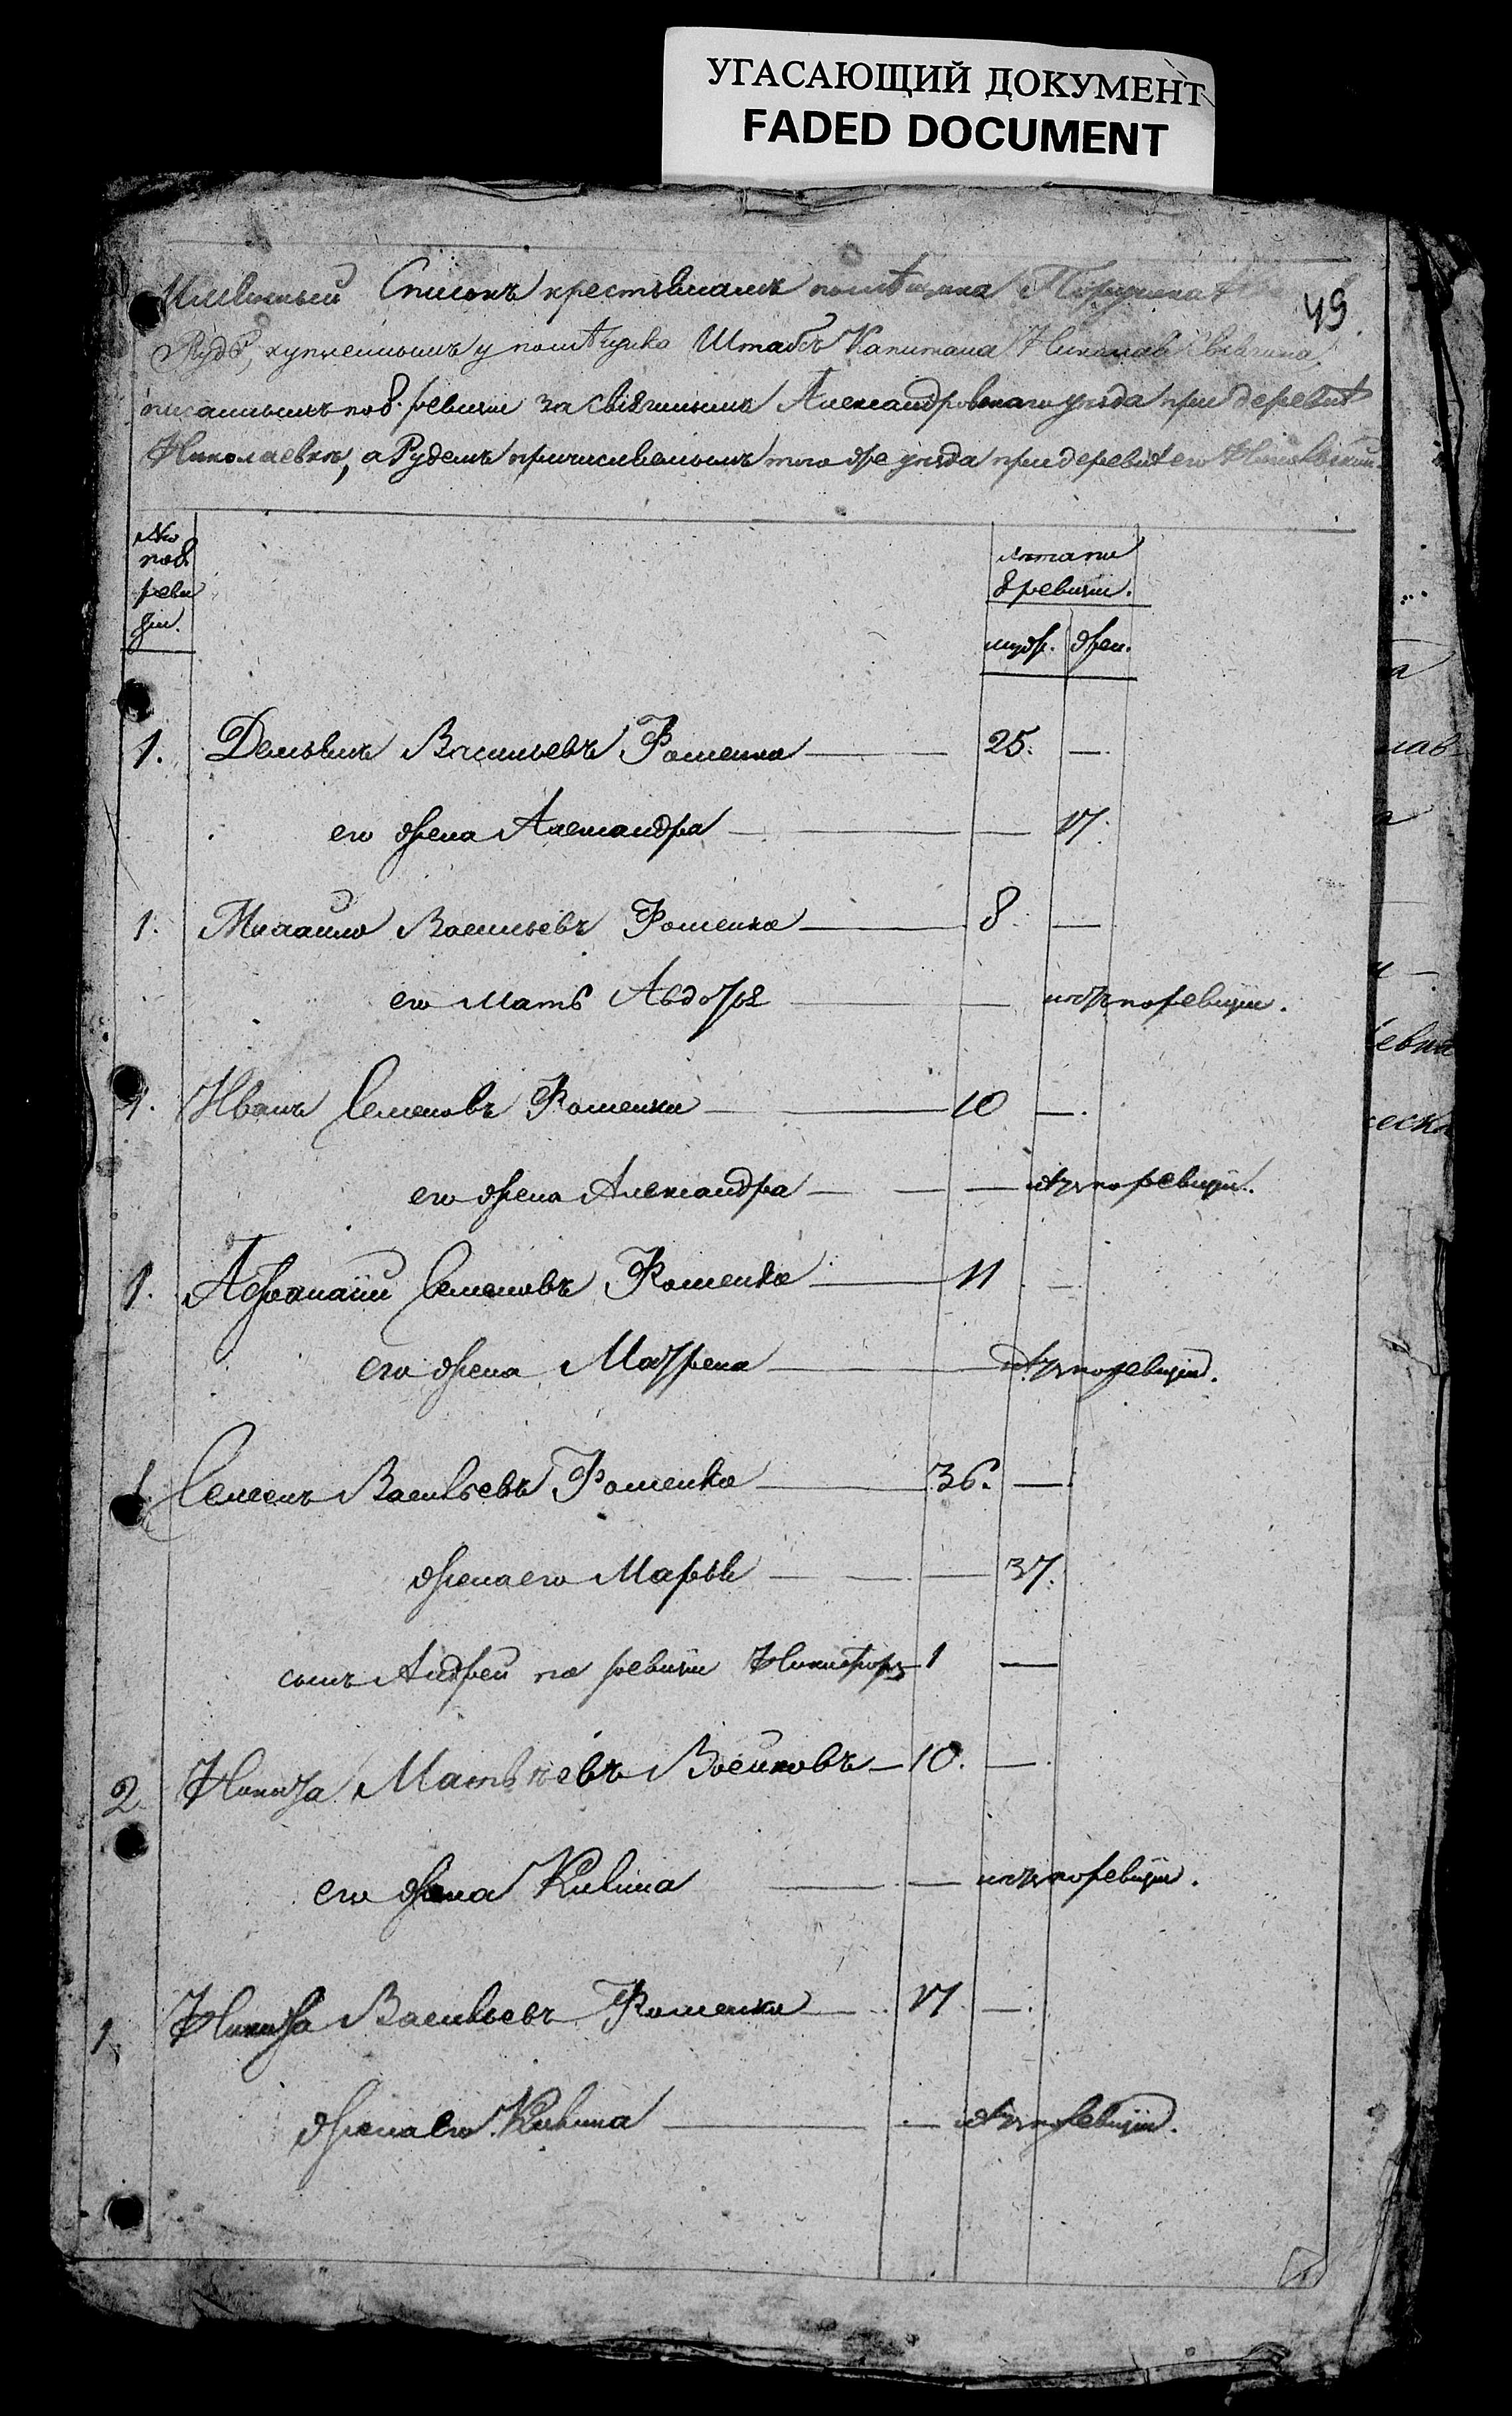 УГАСАЮЩИЙ ДОКУМЕНТ
FADED DOCUMENT
49.
Имѣнный Списокъ крестьянамъ помѣщика Поручика
Рудь, купленнымъ у помѣщика Штабсъ Капитана Николая
писаннымъ по 8. ревизіи за Александровскаго уѣзда при деревнѣ
Николаевкѣ, а Рудемъ причисленнымъ того же уѣзда при деревнѣ его
№
по 8.
реви
зіи.
лѣта по
8 ревизіи.
муж. жен.
1. Демьянъ Васильевъ Фоменко — 25. —
его жена Александра — — 17.
1. Михайло Васильевъ Фоменко — 8. —
его мать Авдотья — — нѣтъ по ревизіи.
1. Иванъ Семеновъ Фоменко — 10 —
его жена Александра — — нѣтъ по ревизіи.
1. Афанасій Семеновъ Фоменко — 11 —
его жена Матрена — нѣтъ по ревизіи.
1. Семенъ Васильевъ Фоменко — 36. —
жена его Марья — — 37.
сынъ Андрей по ревизіи Никифоръ — 1 —
2. Никита Матвѣевъ Воейковъ — 10. —
его жена Килина — — нѣтъ по ревизіи.
1. Никита Васильевъ Фоменко — 17. —
жена его Килина — — нѣтъ по ревизіи.